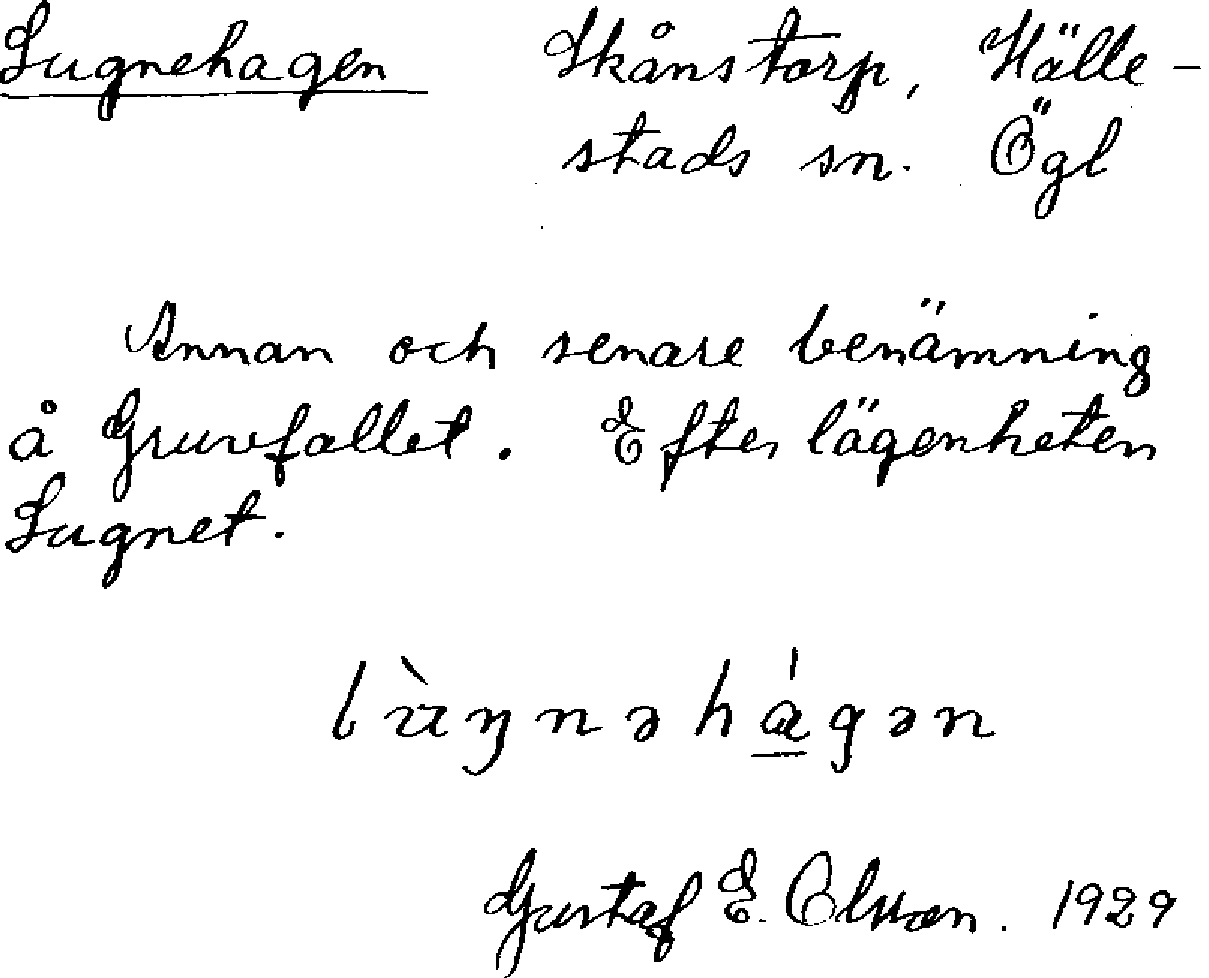 Lugnehagen Skånstorp, Hälle-
stads sn. Ögl
Annan och senare benämning
å Gruvefallet. Efter lägenheten
Lugnet.
Gustaf E. Olsson. 1929